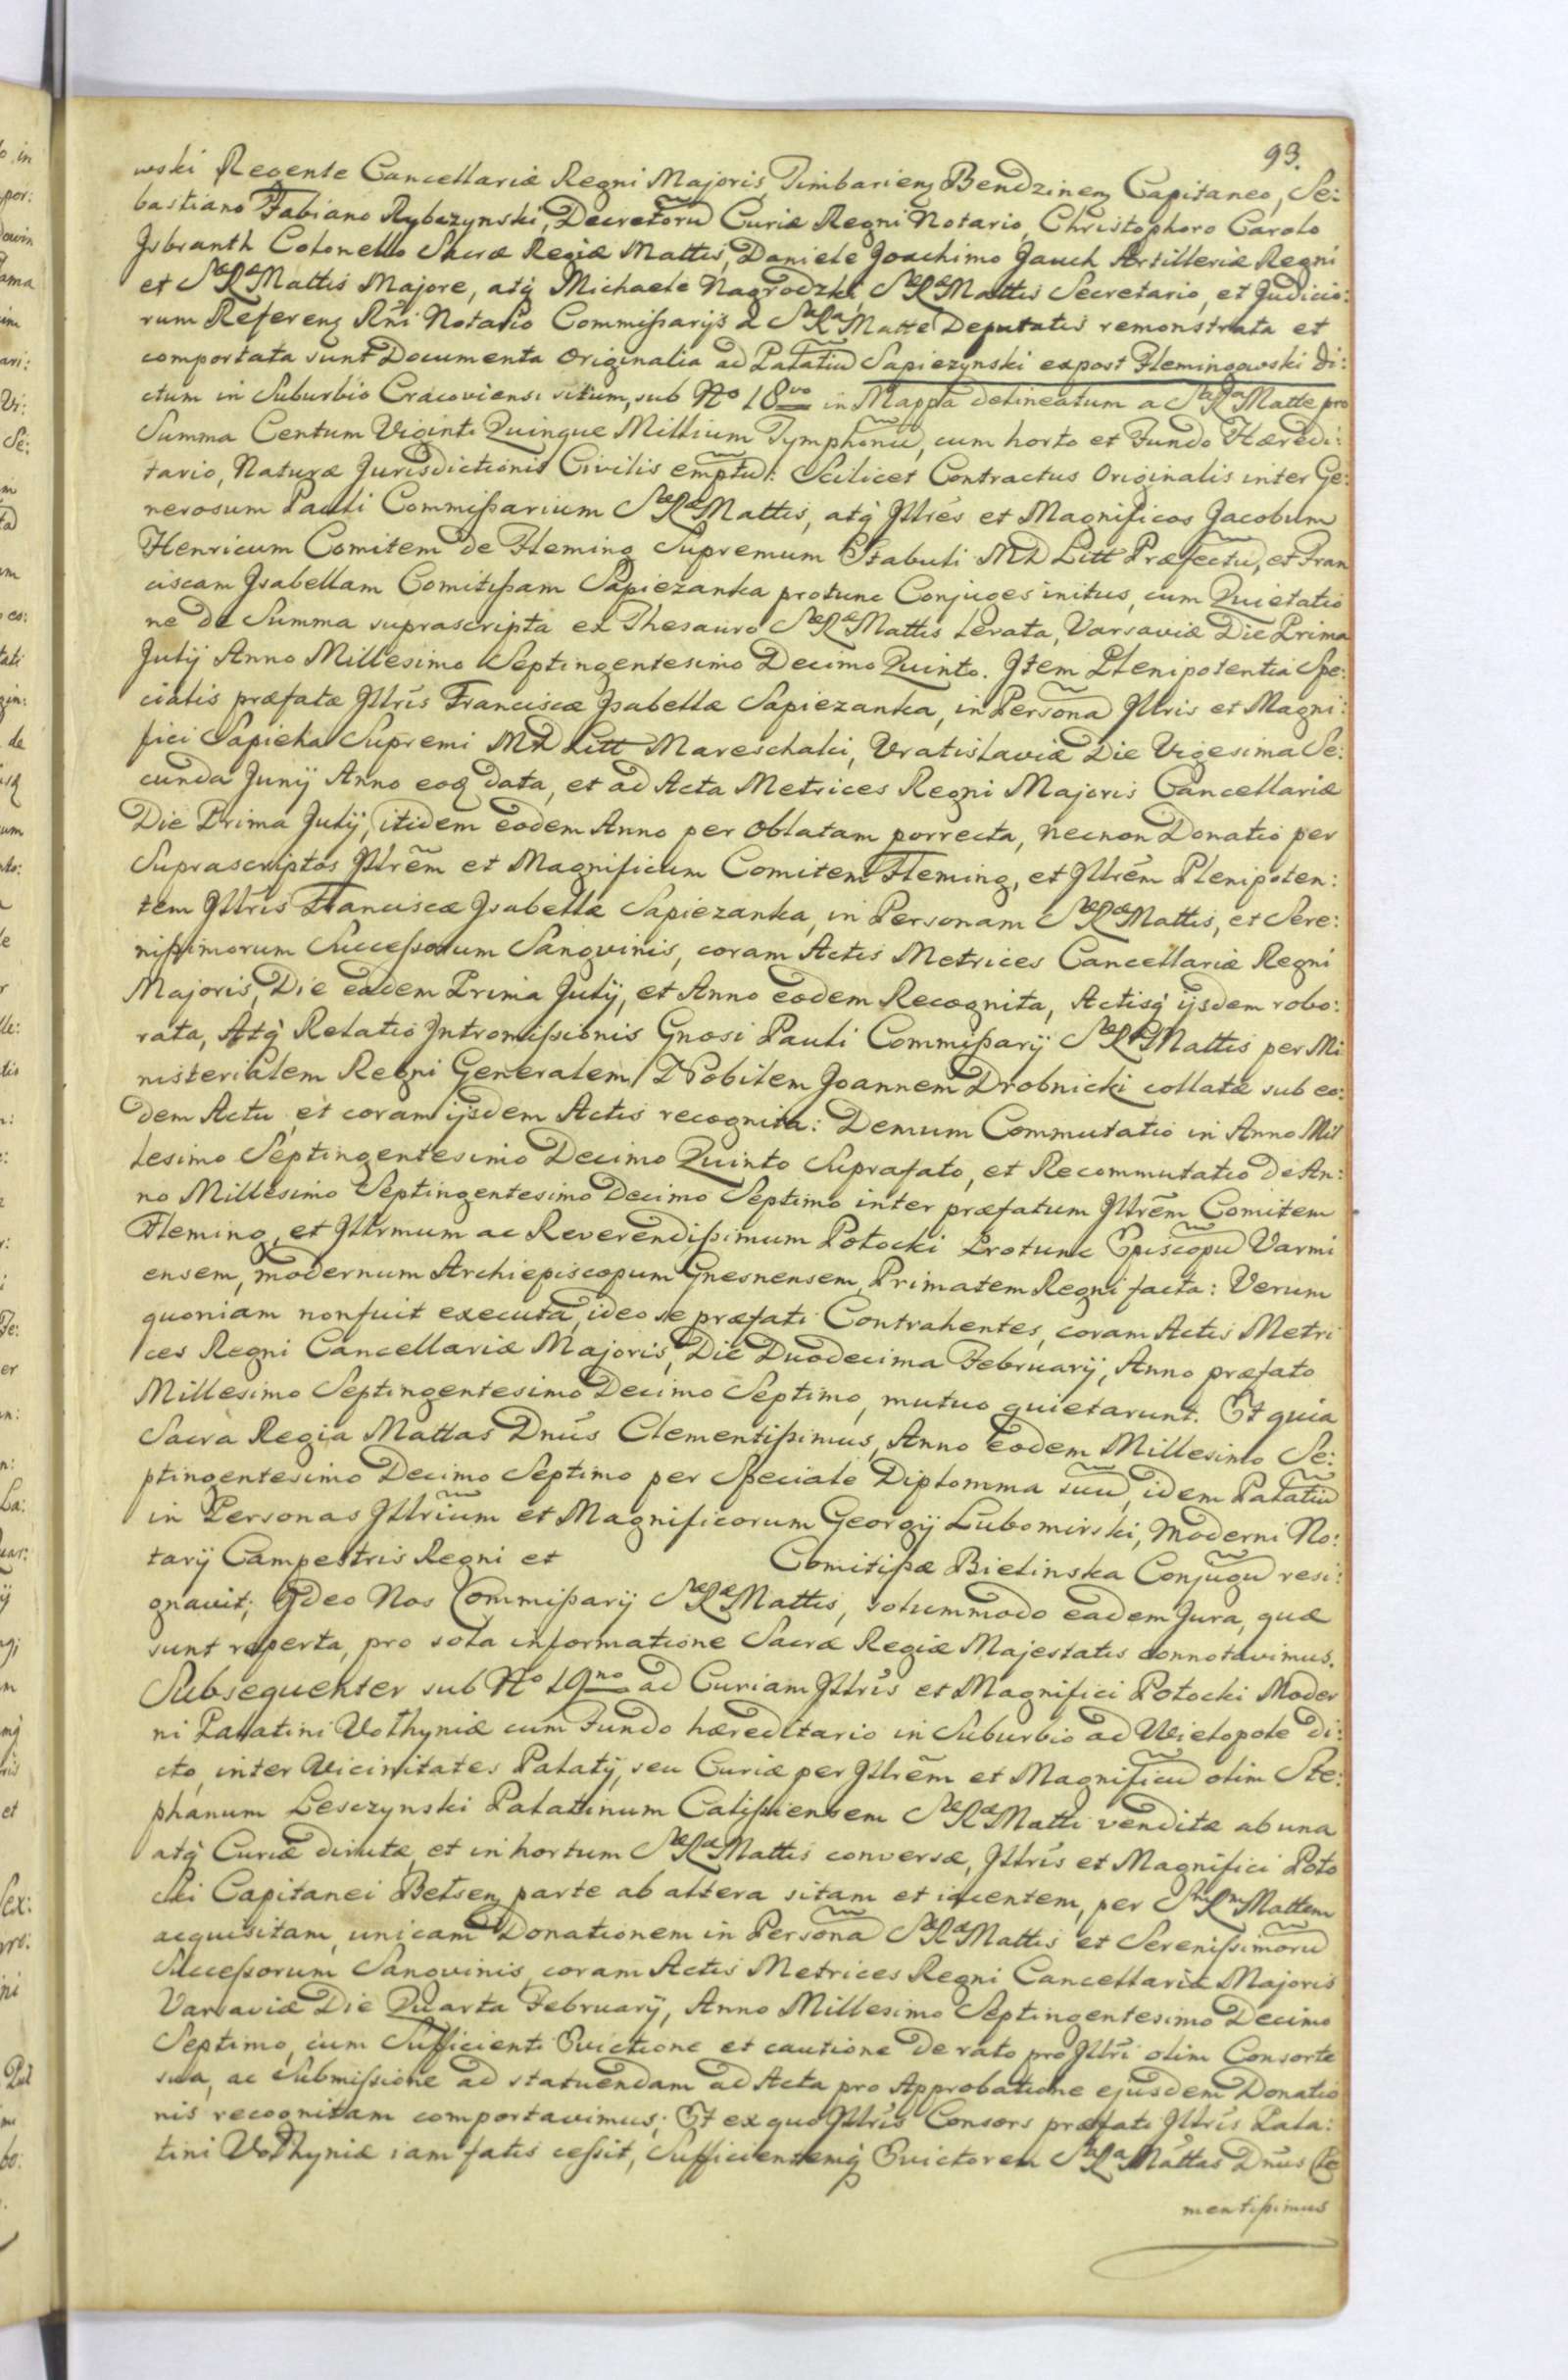 93.
wski Regente Cancellariæ Regni Majoris, Timbarieng Bendzineng Capitaneo, Se:
bastiano Fabiano Rybczynski, Decretorũ Curiæ Regni Notario, Christophoro Carolo
Jsbranth Colonello Sacræ Regiæ Mattis, Daniele Joachimo Jauch Artilleriæ Regni
et SæRæMattis Majore, atq̃ Michaele Nagrodzki, SæRæMattis Secretario, et Judicio:
rum Refereng Rñi Notario Commißarijs a SaRaMatte Deputatis remonstrata et
comportata sunt Documenta Originalia ad Palatiũ Sapiezynski expost Flemingowski di:
ctum in Suburbio Cracoviensi situm, sub No 18vo in Mappa delineatum a SaRaMatte pro
Summa Centum Viginti Quinque Millium Tymphonũ, cum horto et Fundo Hæredi:
tario, Naturæ Jurisdictionis Civilis emptũ: Scilicet Contractus Originalis inter Ge:
nerosum Pauli Commißarium SæRæMattis, atq̃ Jllrẽs et Magnificos Jacobum
Henricum Comitem de Fleming Supremum Stabuli MD Litt Præfectũ, et Fran
ciscam Jsabellam Comitißam Sapiezanka protunc Conjuges initus, cum Quietatio
ne de Summa suprascripta ex Thesauro SæRæMattis levata, Varsaviæ Die Prima
Julij Anno Millesimo Septingentesimo Decimo Quinto. Jtem Plenipotentia Spe:
cialis præfatæ Jllrĩs Franciscæ Jsabellæ Sapiezanka, in Persona͠ Jllris et Magni:
fici Sapieha Supremi MD Litt Mareschalci, Vratislaviæ Die Vigesima Se:
cunda Junij Anno eoq data, et ad Acta Metrices Regni Majoris Cancellariæ
Die Prima Julij, itidem eodem Anno per Oblatam porrecta, necnon Donatio per
Suprascriptos Jllrẽm et Magnificum Comitem Fleming, et Jllrẽm Plenipoten:
tem Jllrĩs Franciscæ Jsabellæ Sapiezanka, in Personam SæRæMattis, et Sere:
nißimorum Succeßorum Sanguinis, coram Actis Metrices Cancellariæ Regni
Majoris, Die eadem Prima Julij, et Anno eodem Recognita, Actisq̃ ijsdem robo:
rata, Atq̃ Relatio Jntromißionis Gnosi Pauli Commißarij SæRæMattis per Mi
nisterialem Regni Generalem, Nobilem Joannem Drobnicki collatæ sub eo:
dem Actu et coram ijsdem Actis recognita: Demum Commutatio in Anno Mil
lesimo Septingentesimo Decimo Quinto Suprafato, et Recommutatio de An:
no Millesimo Septingentesimo Decimo Septimo inter præfatum Jllrẽm Comitem
Fleming, et Jllrmum ac Reverendißimum Potocki Protunc Episcopũ Varmi
ensem, modernum Archiepiscopum Gnesnensem, Primatem Regni facta: Verum
quoniam nonfuit executa, ideo se præfati Contrahentes, coram Actis Metri
ces Regni Cancellariæ Majoris, Die Duodecima Februarij, Anno præfato
Millesimo Septingentesimo Decimo Septimo, mutuo quietarunt. Et quia
Sacra Regia Mattas Dnũs Clementißimus, Anno eodem Millesimo Se:
ptingentesimo Decimo Septimo per Speciale Diplomma suũ, idem Palatiũ
in Personas Jllrium et Magnificorum Georgij Lubomirski, Moderni No:
tarij Campestris Regni et Comitißæ Bielinska Conjugũ resi:
gnavit; Jdeo Nos Commißarij SæRæMattis, solummodo eadem Jura, quæ
sunt reperta, pro sola informatione Sacræ Regiæ Majestatis connotavimus.
Subsequenter sub No 19no ad Curiam Jllrĩs et Magnifici Potocki Moder
ni Palatini Volhyniæ cum Fundo hæreditario in Suburbio ad Wielopole di:
cto, inter Vicinitates Palatij, seu Curiæ per Jllrẽm et Magnificũ olim Ste:
phanum Lesczynski Palatinum Calißiensem SæRæMatti venditæ ab una
atq̃ Curiæ dirutæ, et in hortum SæRæMattis conversæ, Jllrĩs et Magnifici Poto
cki Capitanei Belseng parte ab altera sitam et iacentem, per SmRmMattem
acquisitam, unicam Donationem in Persona͠ SæRæMattis et Serenißimorũ
Succeßorum Sanguinis, coram Actis Metrices Regni Cancellariæ Majoris
Varsaviæ Die Quarta Februarij, Anno Millesimo Septingentesimo Decimo
Septimo, cum Sufficienti Evictione et cautione de rato pro Jllrĩ olim Consorte
sua, ac Submißione ad statuendam ad Acta pro Approbatione ejusdem Donatio
nis recognitam comportavimus; Et ex quo Jllrĩs Consors præfati Jllrĩs Pala:
tini Volhyniæ iam fatis ceßit, Sufficientemq̃ Evictorem SaRaMattas Dnũs Cle
mentißimus